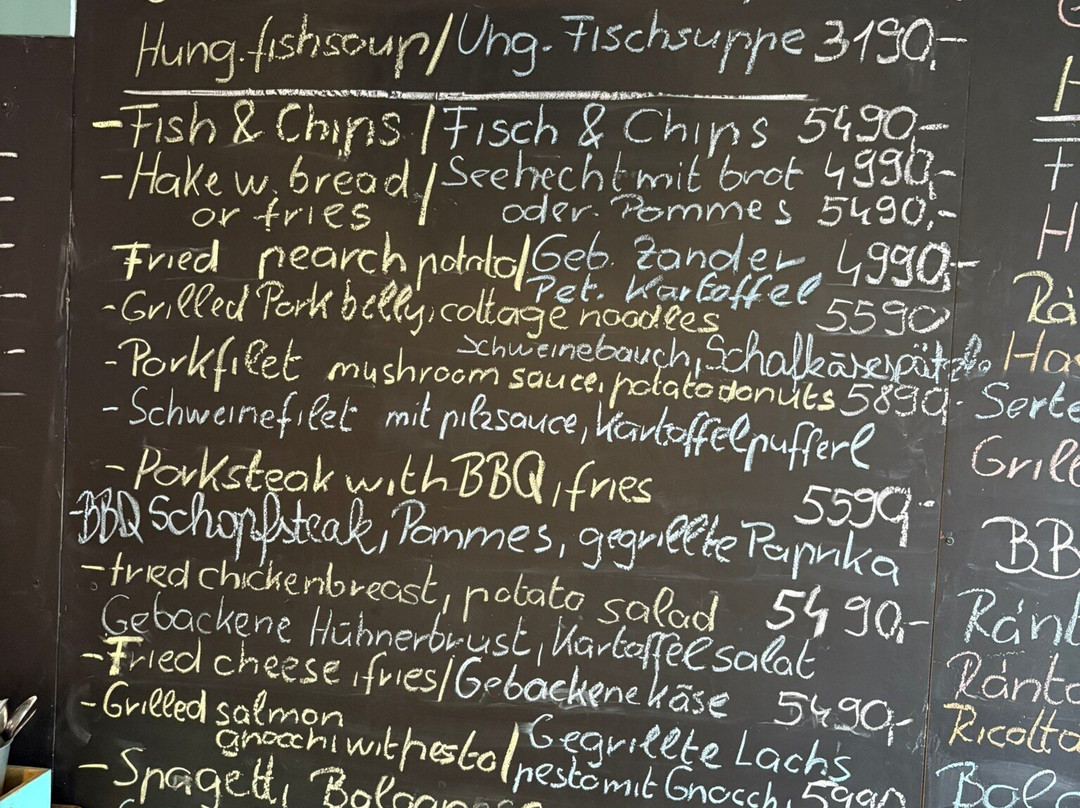 Hung. fishsoup/Ung. Fischsuppe 3190,-
- Fish & Chips / Fisch & Chips 5490,-
- Hake w. bread / Seehecht mit brot 4990,-
or fries oder Pommes 5490,-
Fried pearch potato/Geb. Zander 4990,-
Pet. Kartoffel
- Grilled Pork belly, cottage noodles 5590
Schweinebauch, Schafkäsespätzle
- Porkfilet mushroom sauce, potatodonuts 5890,-
- Schweinefilet mit pilzsauce, Kartoffelpufferl
- Porksteak with BBQ, fries 5590,-
- BBQ Schopfsteak, Pommes, gegrillte Paprika
- fried chickenbreast, potato salad 5490,-
Gebackene Hühnerbrust, Kartoffelsalat
- Fried cheese, fries/Gebackene käse 5490,-
- Grilled salmon / Gegrillte Lachs
gnocchi wit pesto / pesto mit Gnocchi 5990
- Spagetti Bolognese
H
F
H
Rá
Ha
Serté
Grill
BB
Ránt
Ránto
Ricotta
Bolo